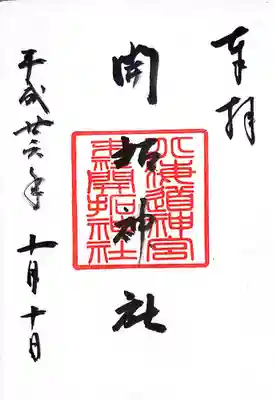 奉拝
開拓神社
北海道神宮
末開拓神社
平成廿六年 十月十日